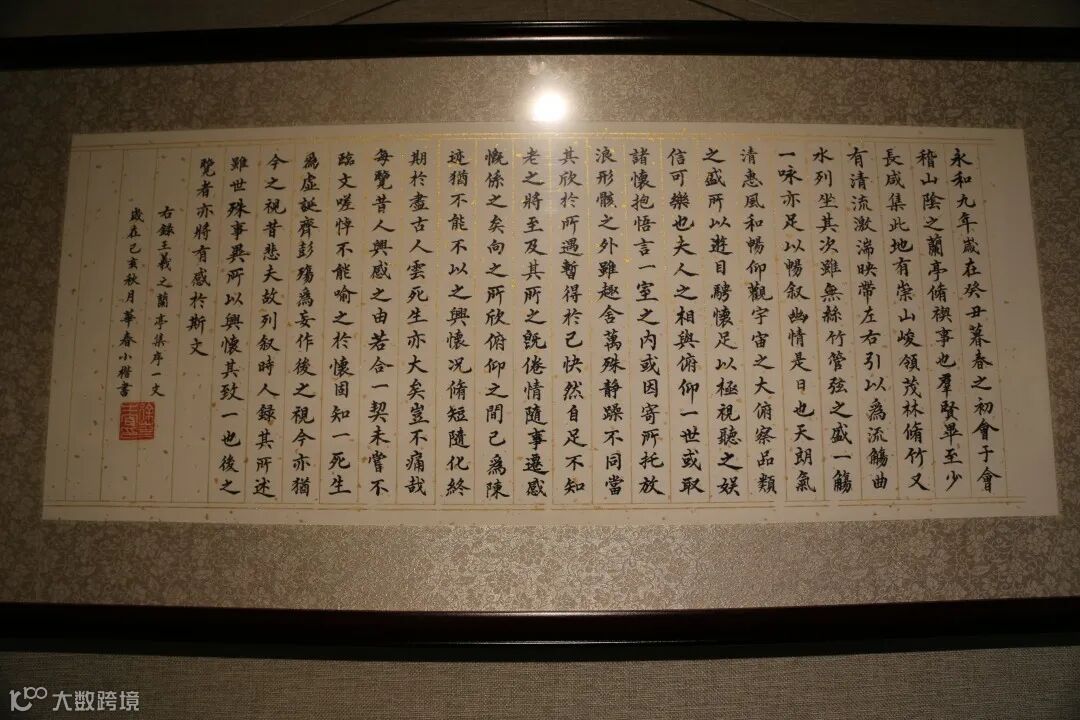 永和九年歲在癸丑暮春之初會于會
稽山陰之蘭亭脩禊事也羣賢畢至少
長咸集此地有崇山峻領茂林脩竹又
有清流激湍映帶左右引以為流觴曲
水列坐其次雖無絲竹管弦之盛一觴
一咏亦足以暢叙幽情是日也天朗氣
清惠風和暢仰觀宇宙之大俯察品類
之盛所以遊目騁懷足以極視聽之娛
信可樂也夫人之相與俯仰一世或取
諸懷抱悟言一室之內或因寄所托放
浪形骸之外雖趣舍萬殊静躁不同當
其欣於所遇暫得於己快然自足不知
老之將至及其所之既倦情隨事遷感
慨係之矣向之所欣俯仰之間已為陳
迹猶不能不以之興懷况脩短隨化終
期於盡古人雲死生亦大矣豈不痛哉
每覽昔人興感之由若合一契未嘗不
臨文嗟悼不能喻之於懷固知一死生
為虛誕齊彭殤為妄作後之視今亦猶
今之視昔悲夫故列叙時人録其所述
雖世殊事異所以興懷其致一也後之
覽者亦將有感於斯文
右録王羲之蘭亭集序一文
歲在己亥秋月華春小楷書
大数跨境